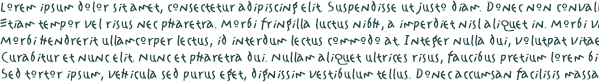 Lorem ipsum dolor sit amet, consectetur adipiscing elit. Suspendisse ut justo diam. Donec non convall
Etiam tempor vel risus nec pharetra. Morbi fringilla luctus nibh, a imperdiet nisl aliquet in. Morbi v
Morbi hendrerit ullamcorper lectus, id interdum lectus commodo at. Integer nulla dui, volutpat vitae
Curabitur et nunc elit. Nunc et pharetra dui. Nullam aliquet ultrices risus, faucibus pretium lorem bi
Sed tortor ipsum, vehicula sed purus eget, dignissim vestibulum tellus. Donec accumsan facilisis massa